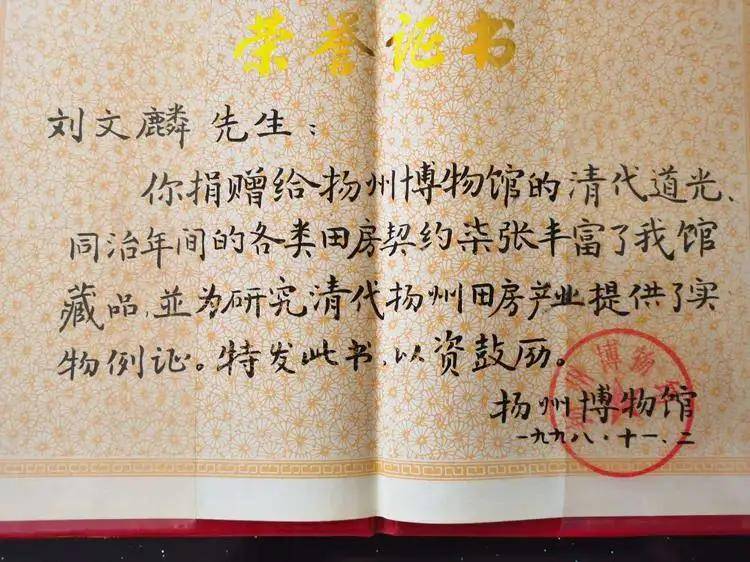 荣誉证书
刘文麟 先生：
你捐赠给扬州博物馆的清代道光、
同治年间的各类田房契约柒张丰富了我馆
藏品，並为研究清代扬州田房产业提供了实
物例证。特发此书，以资鼓励。
扬州博物馆
一九九八·十一、二